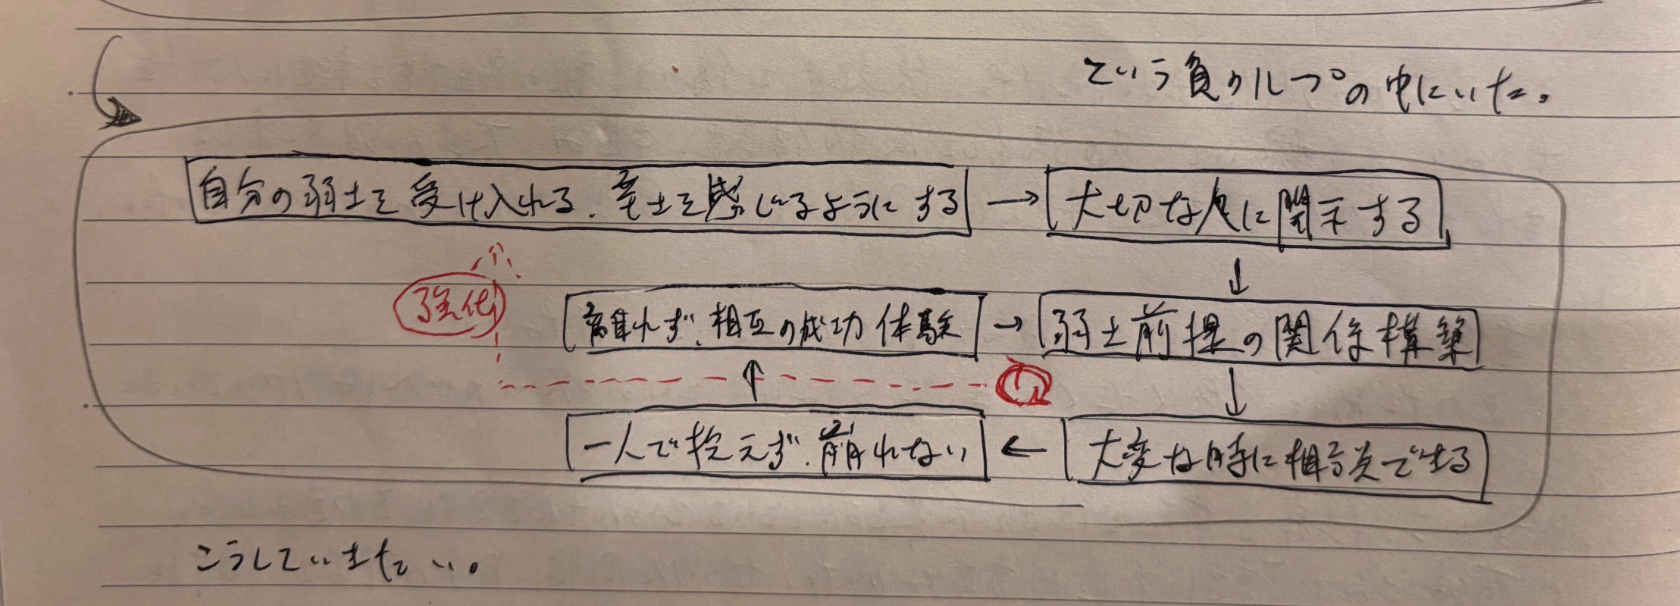 という負のループの中にいた。
自分の弱さを受け入れる、幸せを感じるようにする → 大切な人に開示する
↓
強化
離れず、相互の成功体験 → 弱さ前提の関係構築
↑ ↓
一人で抱えず、崩れない ← 大変な時に相談できる
こうしていきたい。